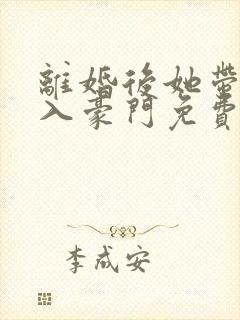 離婚後她帶
入豪門免費
李成安